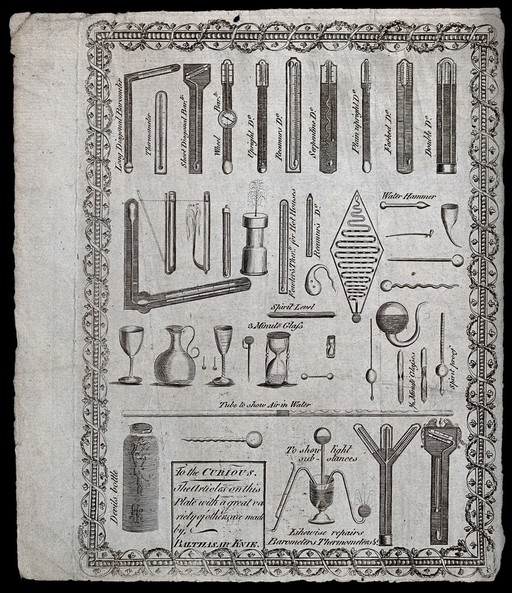 Long Diagonal Barometer
Thermometer
Short Diagonal Bar.r
Wheel Bar.r
Upright D.o
Reamurs D.o
Serpentine D.o
Plain upright D.o
Forked D.o
Double D.o
Water Hammer
Fowlers Ther.r for Hot Houses
Reamurs D.o
Spirit Level
3 Minute Glass
½ Minute Glasses
Spirit proof
Tube to show Air in Water
Devils bottle
To the CURIOUS.
The Articles on this
Plate with a great va
riety of others, are made
by,
BALTHASAR KNIE.
To show light
sub-stances
Likewise repairs
Barometers Thermometers &c